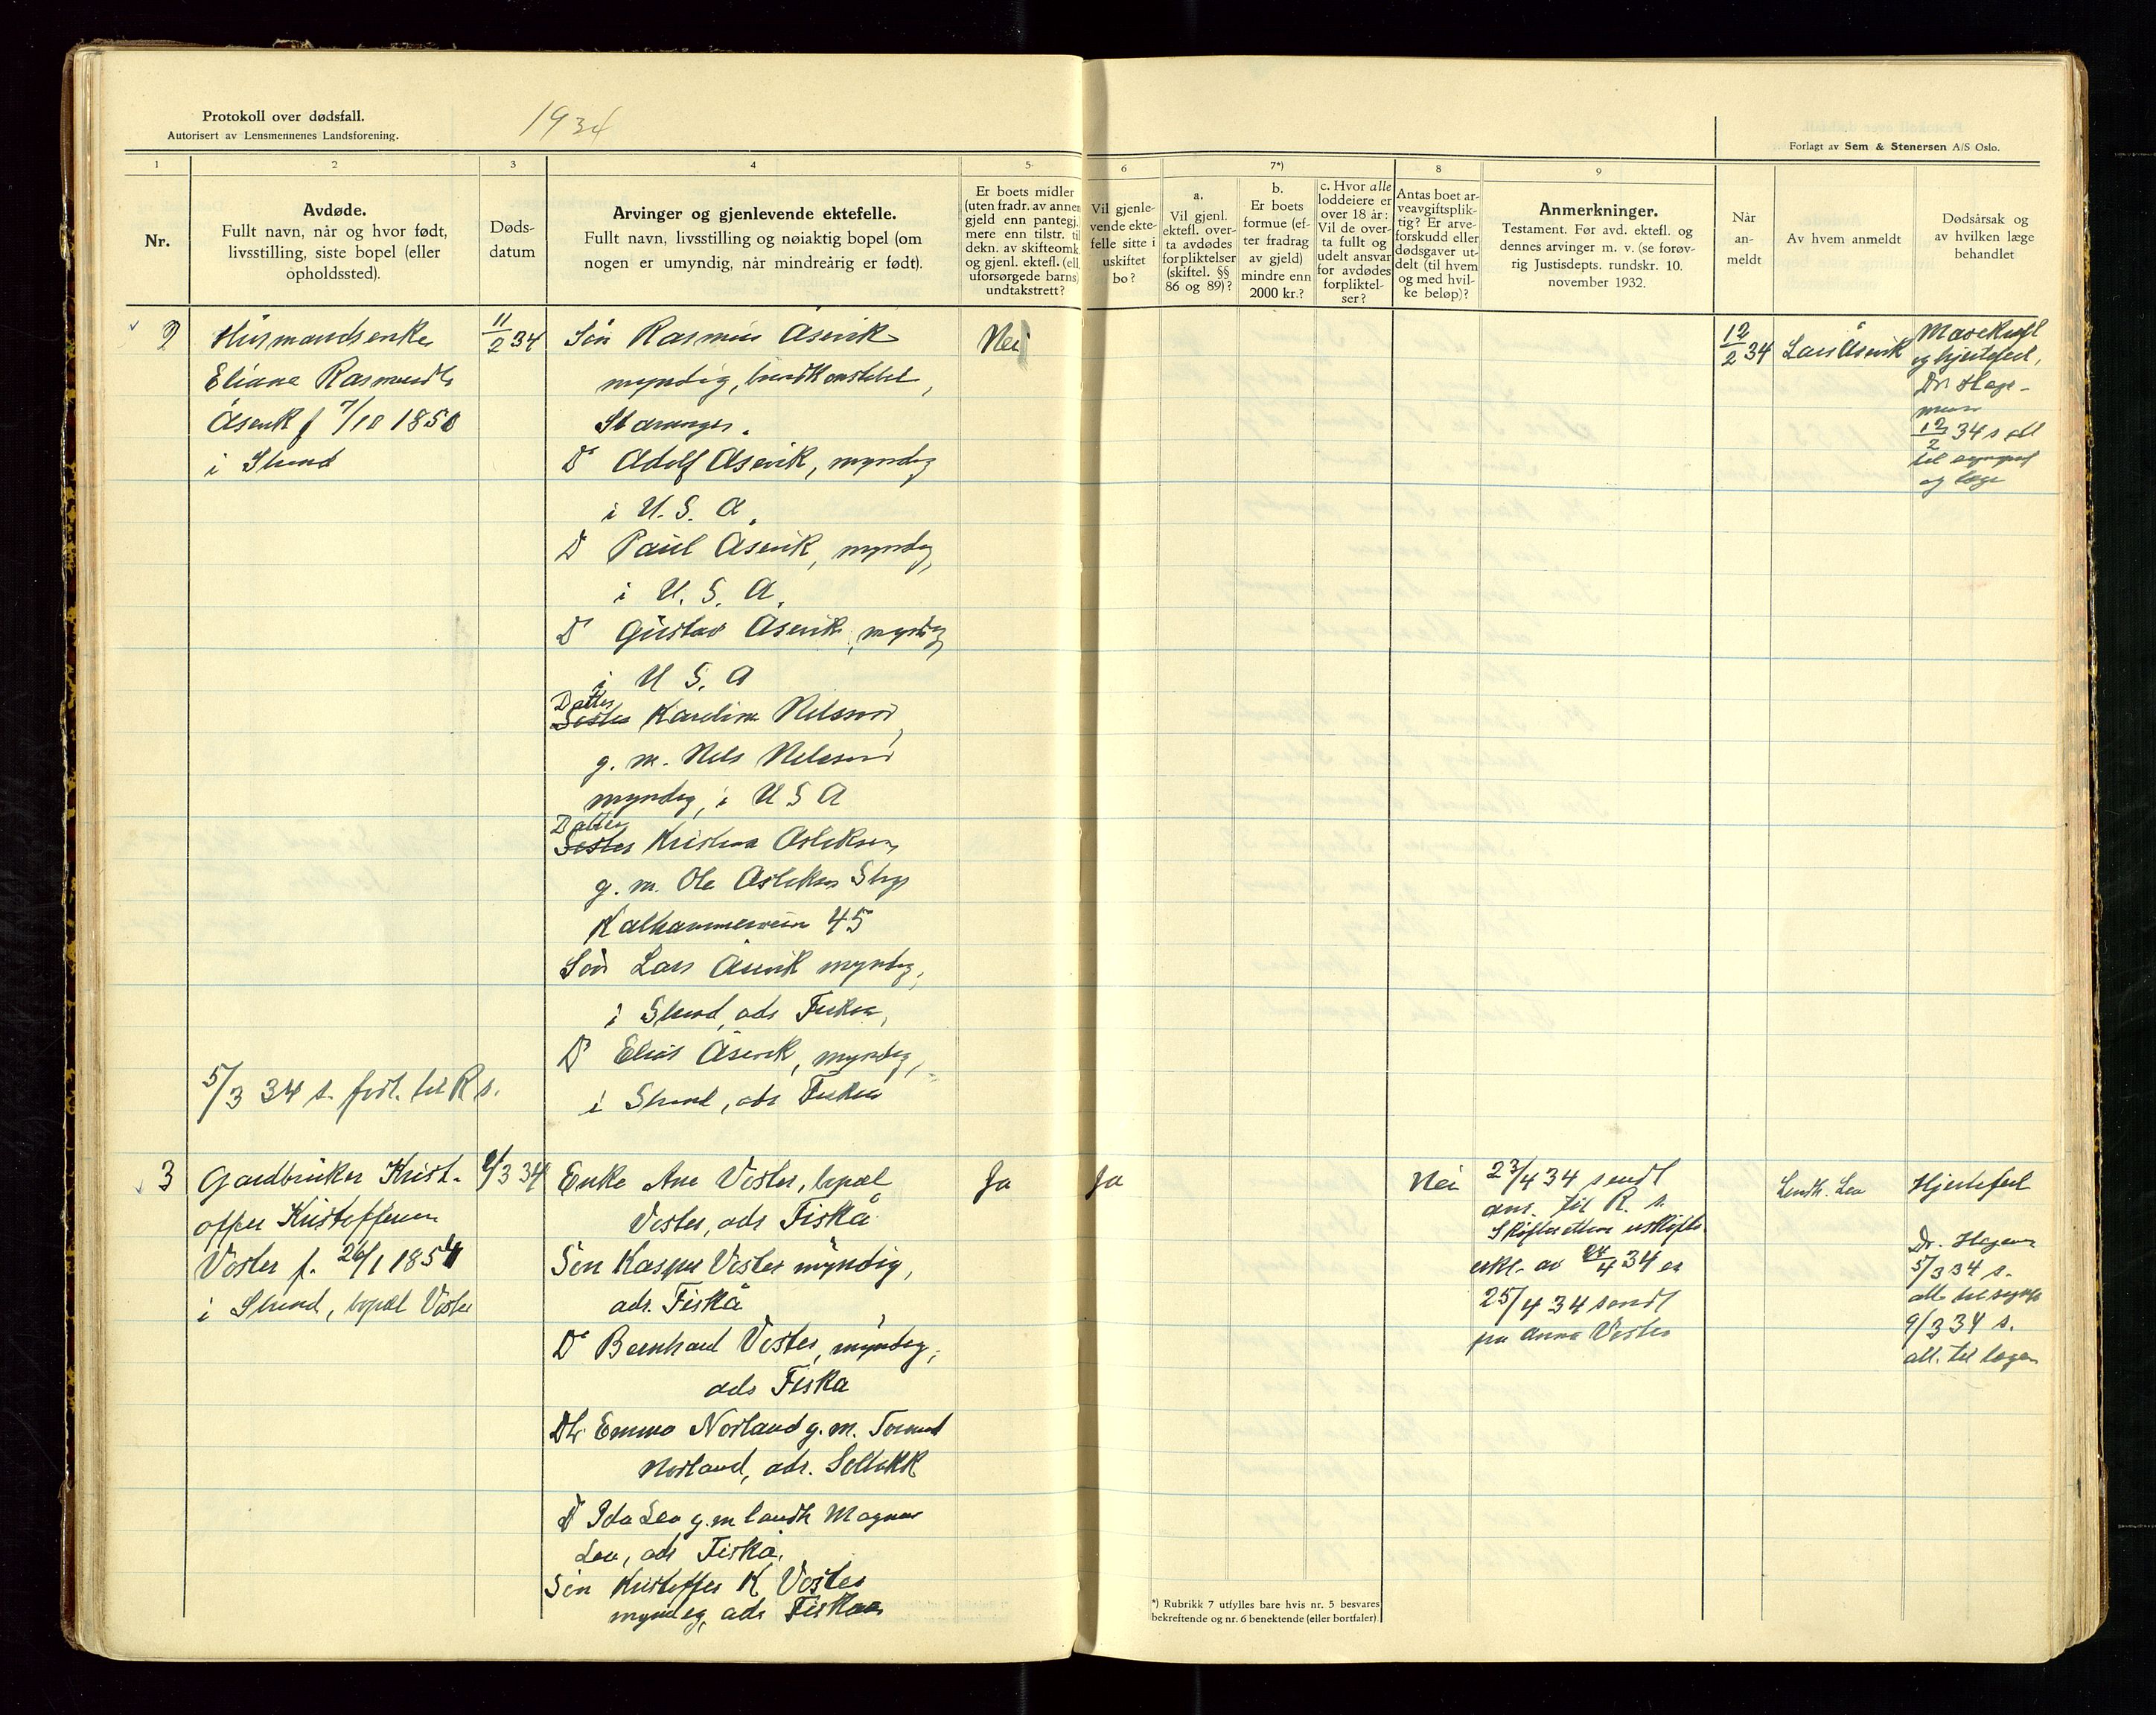 Protokoll over dødsfall.
Autorisert av Lensmennenes Landsforening.
1934
Forlagt av Sem & Stenersen A/S Oslo.
1 2 3 4 5 6 7*) 8 9
Nr.
Avdøde.
Fullt navn, når og hvor født,
livsstilling, siste bopel (eller
opholdssted).
Døds-
datum
Arvinger og gjenlevende ektefelle.
Fullt navn, livsstilling og nøiaktig bopel (om
nogen er umyndig, når mindreårig er født).
Er boets midler
(uten fradr. av annen
gjeld enn pantegj.)
mere enn tilstr. til
dekn. av skifteomk.
og gjenl. ektef. (ell.
uforsørgede barns)
undtakstrett?
Vil gjenle-
vende ekte-
felle sitte i
uskiftet
bo?
a.
Vil gjenl.
ektefl. over-
ta avdødes
forpliktelser
(skiftel. §§
86 og 89)?
b.
Er boets
formue (ef-
ter fradrag
av gjeld)
mindre enn
2000 kr.?
c. Hvor alle
loddeiere er
over 18 år:
Vil de over-
ta fullt og
udelt ansvar
for avdødes
forpliktel-
ser?
Antas boet ar-
veavgiftsplik-
tig? Er arve-
forskudd eller
dødsgaver ut-
delt (til hvem
og med hvil-
ke beløp)?
Anmerkninger.
Testament. Før avd. ektefl. og
dennes arvinger m. v. (se forøv-
rig Justisdepts. rundskr. 10.
november 1932.
Når
an-
meldt
Av hvem anmeldt
Dødsårsak og
av hvilken læge
behandlet
2
Husmandsenke
Eliane Rasmusdtr
Åsenk f 7/10 1850
i Strand
11/2 34
Søn Rasmus Åsevik
myndig, brandkonstabel,
Stavanger.
Do Adolf Åsevik, myndig
i U. S. A.
Do Paul Åsevik, myndig,
i U. S. A.
Do Gustav Åsevik, myndig
i U S. A
Datter
Søster Karoline Nelson,
g. m. Nels Nelson
myndig, i U S A
Datter
Søster Kristina Asleksen,
g. m. Ole Asleksen Stvgr
Kalhammerveien 45
Søn Lars Åsevik myndig,
i Strand, adr Fiskå,
Do Elias Åsevik, myndig,
i Strand, adr Fiskå
Nei
12/2 34
Lars Åsevik
Mavekreft
og hjertefeil,
Dr. Hage-
mann
12/2 34 s att
til sogneprest
og læge
5/3 34 s. forl. til R s.
3
Gardbruker Krist-
offer Kristoffersen
Voster f. 26/1 1854
i Strand, bopæl Voster
/3 34
Enke Ane Voster, bopæl
Voster, adr Fiskå
Søn Kasper Voster myndig,
adr. Fiskå
Do Bernhard Voster, myndig,
adr Fiskå
Dtr Emma Norland g. m. Tormod
Norland, adr.
D Ida Lea g. m landh Magnus
Lea, adr Fiskå,
Søn Kristoffer K Voster
myndig, adr Fiskaa
Ja
Ja
Nei
23/4 34 sendt
ans. til R. s.
Skifterettens uskifte
erkl. av 24/4 34 er
25/4 34 sendt
fru Anna Voster
Landh. Lea
Hjertefeil
Dr. Hagem
5/3 34 s.
att. til sognepr
9/3 34 s.
att. til lægen
*) Rubrikk 7 utfylles bare hvis nr. 5 besvares
bekreftende og nr. 6 benektende (eller bortfaler)